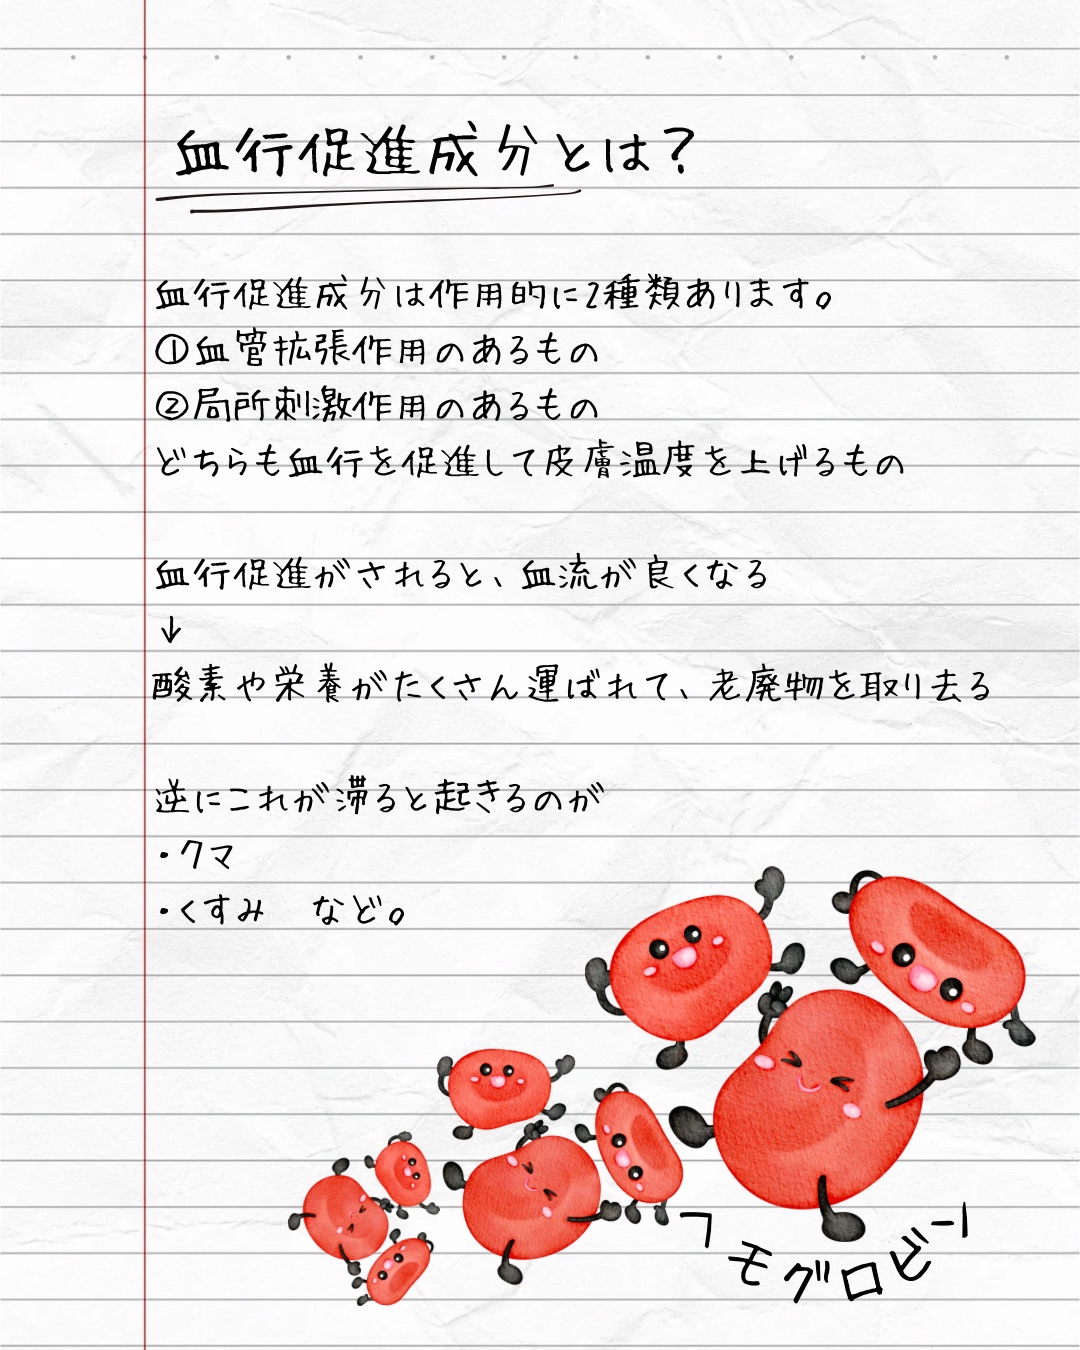 血行促進成分とは？
血行促進成分は作用的に2種類あります。
①血管拡張作用のあるもの
②局所刺激作用のあるもの
どちらも血行を促進して皮膚温度を上げるもの
血行促進がされると、血流が良くなる
↓
酸素や栄養がたくさん運ばれて、老廃物を取り去る
逆にこれが滞ると起きるのが
・クマ
・くすみ　など。
「モグロビー」